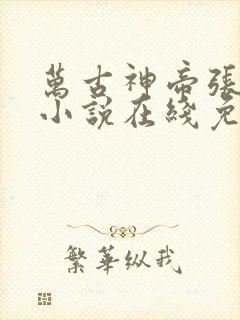 萬古神帝張
小說在綫免
繁華纵我